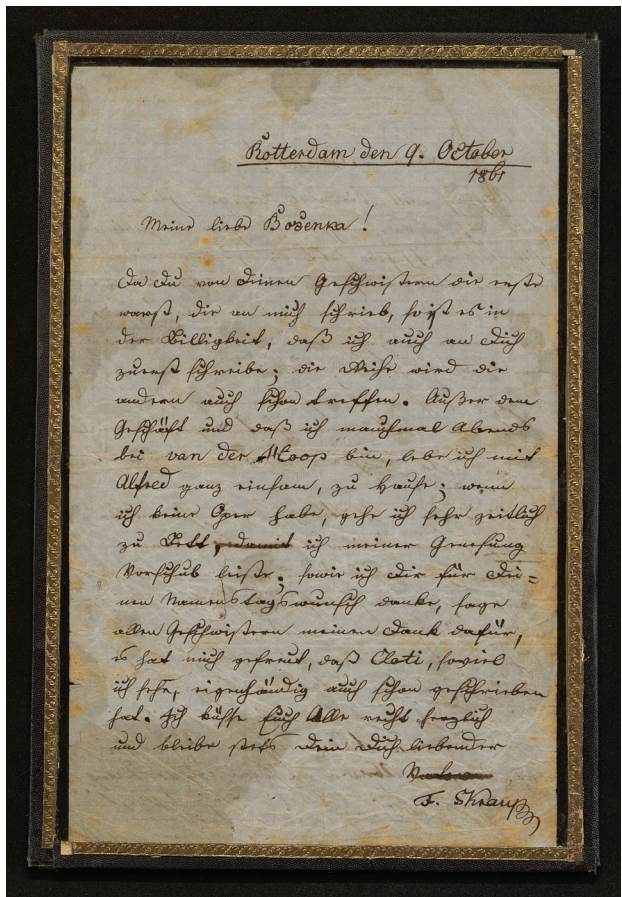 Rotterdam den 9. October
1861
Meine liebe Bosenka!
Da Du von Deinen Geschwistern die erste
warst, die an mich schrieb, so ist es in
der Billigkeit, daß ich auch an Dich
zuerst schreibe; die Reihe wird die
andern auch schon treffen. Außer dem
Geschäft und daß ich manchmal Abends
bei van der Hoop bin, lebe ich mit
Alfred ganz einsam, zu Hause; wenn
ich keine Oper habe, gehe ich sehr zeitlich
zu Bett, damit ich meiner Genesung
Vorschub leiste; sowie ich Dir für Dei=
nen Namenstagswunsch danke, sage
allen Geschwistern meinen Dank dafür,
es hat mich gefreut, daß Cloti, soviel
ich sehe, eigenhändig auch schon geschrieben
hat. Ich küsse Euch Alle recht herzlich
und bleibe stets Dein Dich liebender
F. Skraup